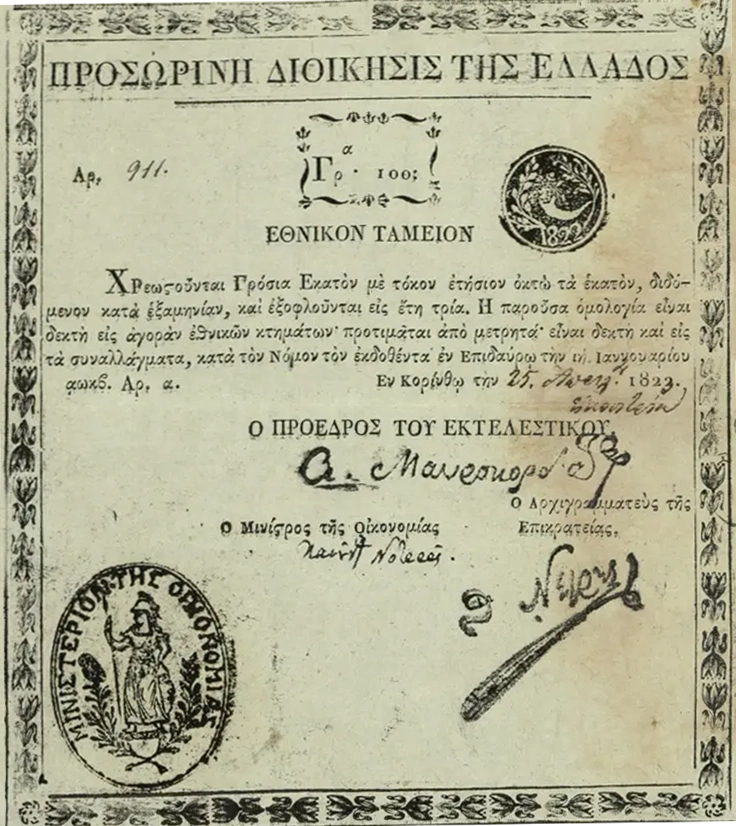 ΠΡΟΣΩΡΙΝΗ ΔΙΟΙΚΗΣΙΣ ΤΗΣ ΕΛΛΑΔΟΣ
Αρ, 911.
Γρ^α · 100;
1822
ΕΘΝΙΚΟΝ ΤΑΜΕΙΟΝ
Χρεωϛοῦνται Γρόσια Εκατὸν μὲ τόκον ἐτήσιον ὀκτὼ τὰ ἑκατὸν, διδό-
μενον κατὰ ἑξαμηνίαν, καὶ ἐξοφλοῦνται εἰς ἔτη τρία. Η παροῦσα ὁμολογία εἶναι
δεκτὴ εἰς ἀγορὰν ἐθνικῶν κτημάτων· προτιμᾶται ἀπὸ μετρητά· εἶναι δεκτὴ καὶ εἰς
τὰ συναλλάγματα, κατὰ τὸν Νόμον τὸν ἐκδοθέντα ἐν Επιδαύρῳ τὴν ιη. Ιαννουαρίου
αωκβ. Αρ. α. Εν Κορίνθῳ τὴν 25. 1822.
Ο ΠΡΟΕΔΡΟΣ ΤΟΥ ΕΚΤΕΛΕΣΤΙΚΟΥ,
Α. Μαυροκορδ
Ο Αρχιγραμματεὺς τῆς
Ο Μινίϛρος τῆς Οἰκονομίας Επικρατείας,
Νέγρης
ΜΙΝΙΣΤΕΡΙΟΝ ΤΗΣ ΟΙΚΟΝΟΜΙΑΣ